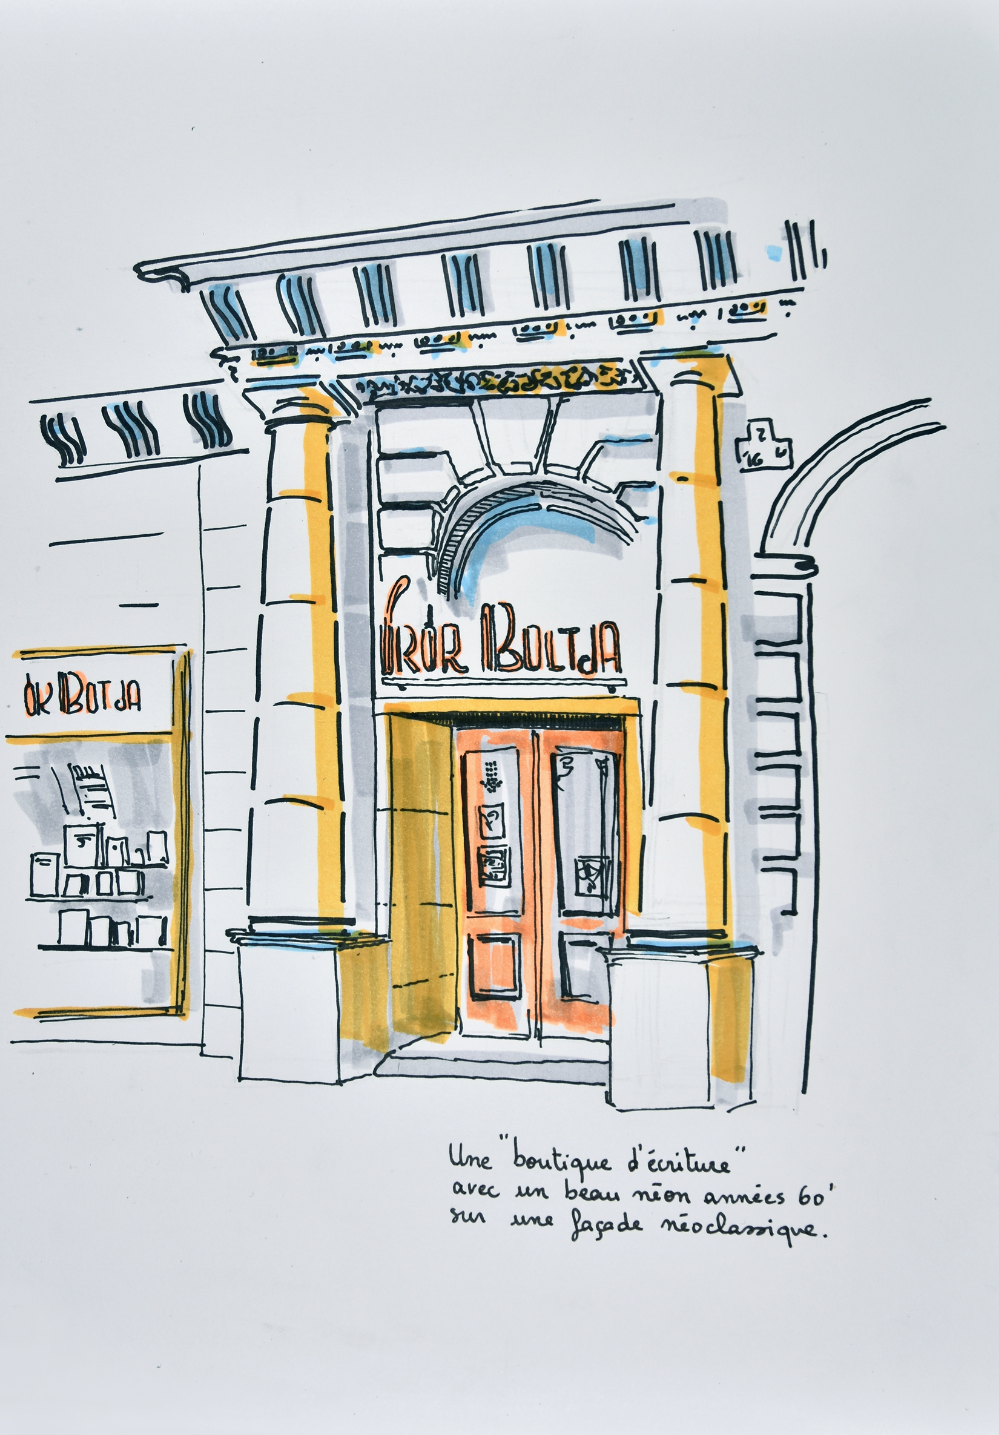 ÍRÓR BOLTJA
ÓK BOTJA
Une "boutique d'écriture"
avec un beau néon années 60'
sur une façade néoclassique.